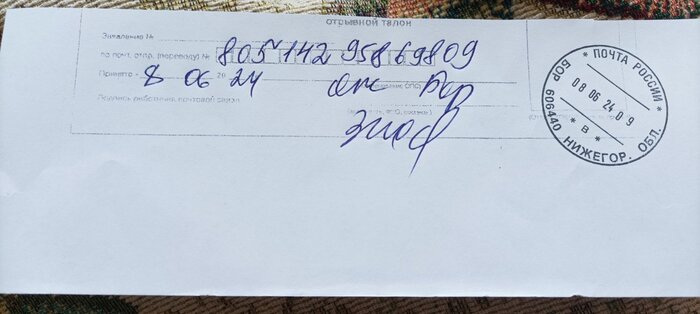 отрывной талон
Заявление №
по почт. отпр. (переводу) № 80514295869809
Принято 8 06 24 опс Бор
Подпись работника почтовой связи
* ПОЧТА РОССИИ *
08 06 24 09
* В *
БОР 606440 НИЖЕГОР. ОБЛ.